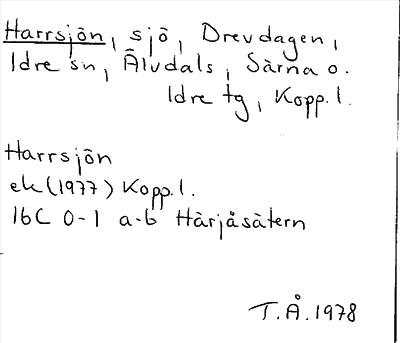 Harrsjön, sjö, Drevdagen,
Idre sn, Älvdals, Särna o.
Idre tg, Kopp. l.
Harrsjön
ek (1977) Kopp. l.
16C 0-1 a-b Härjåsätern
T.Å. 1978